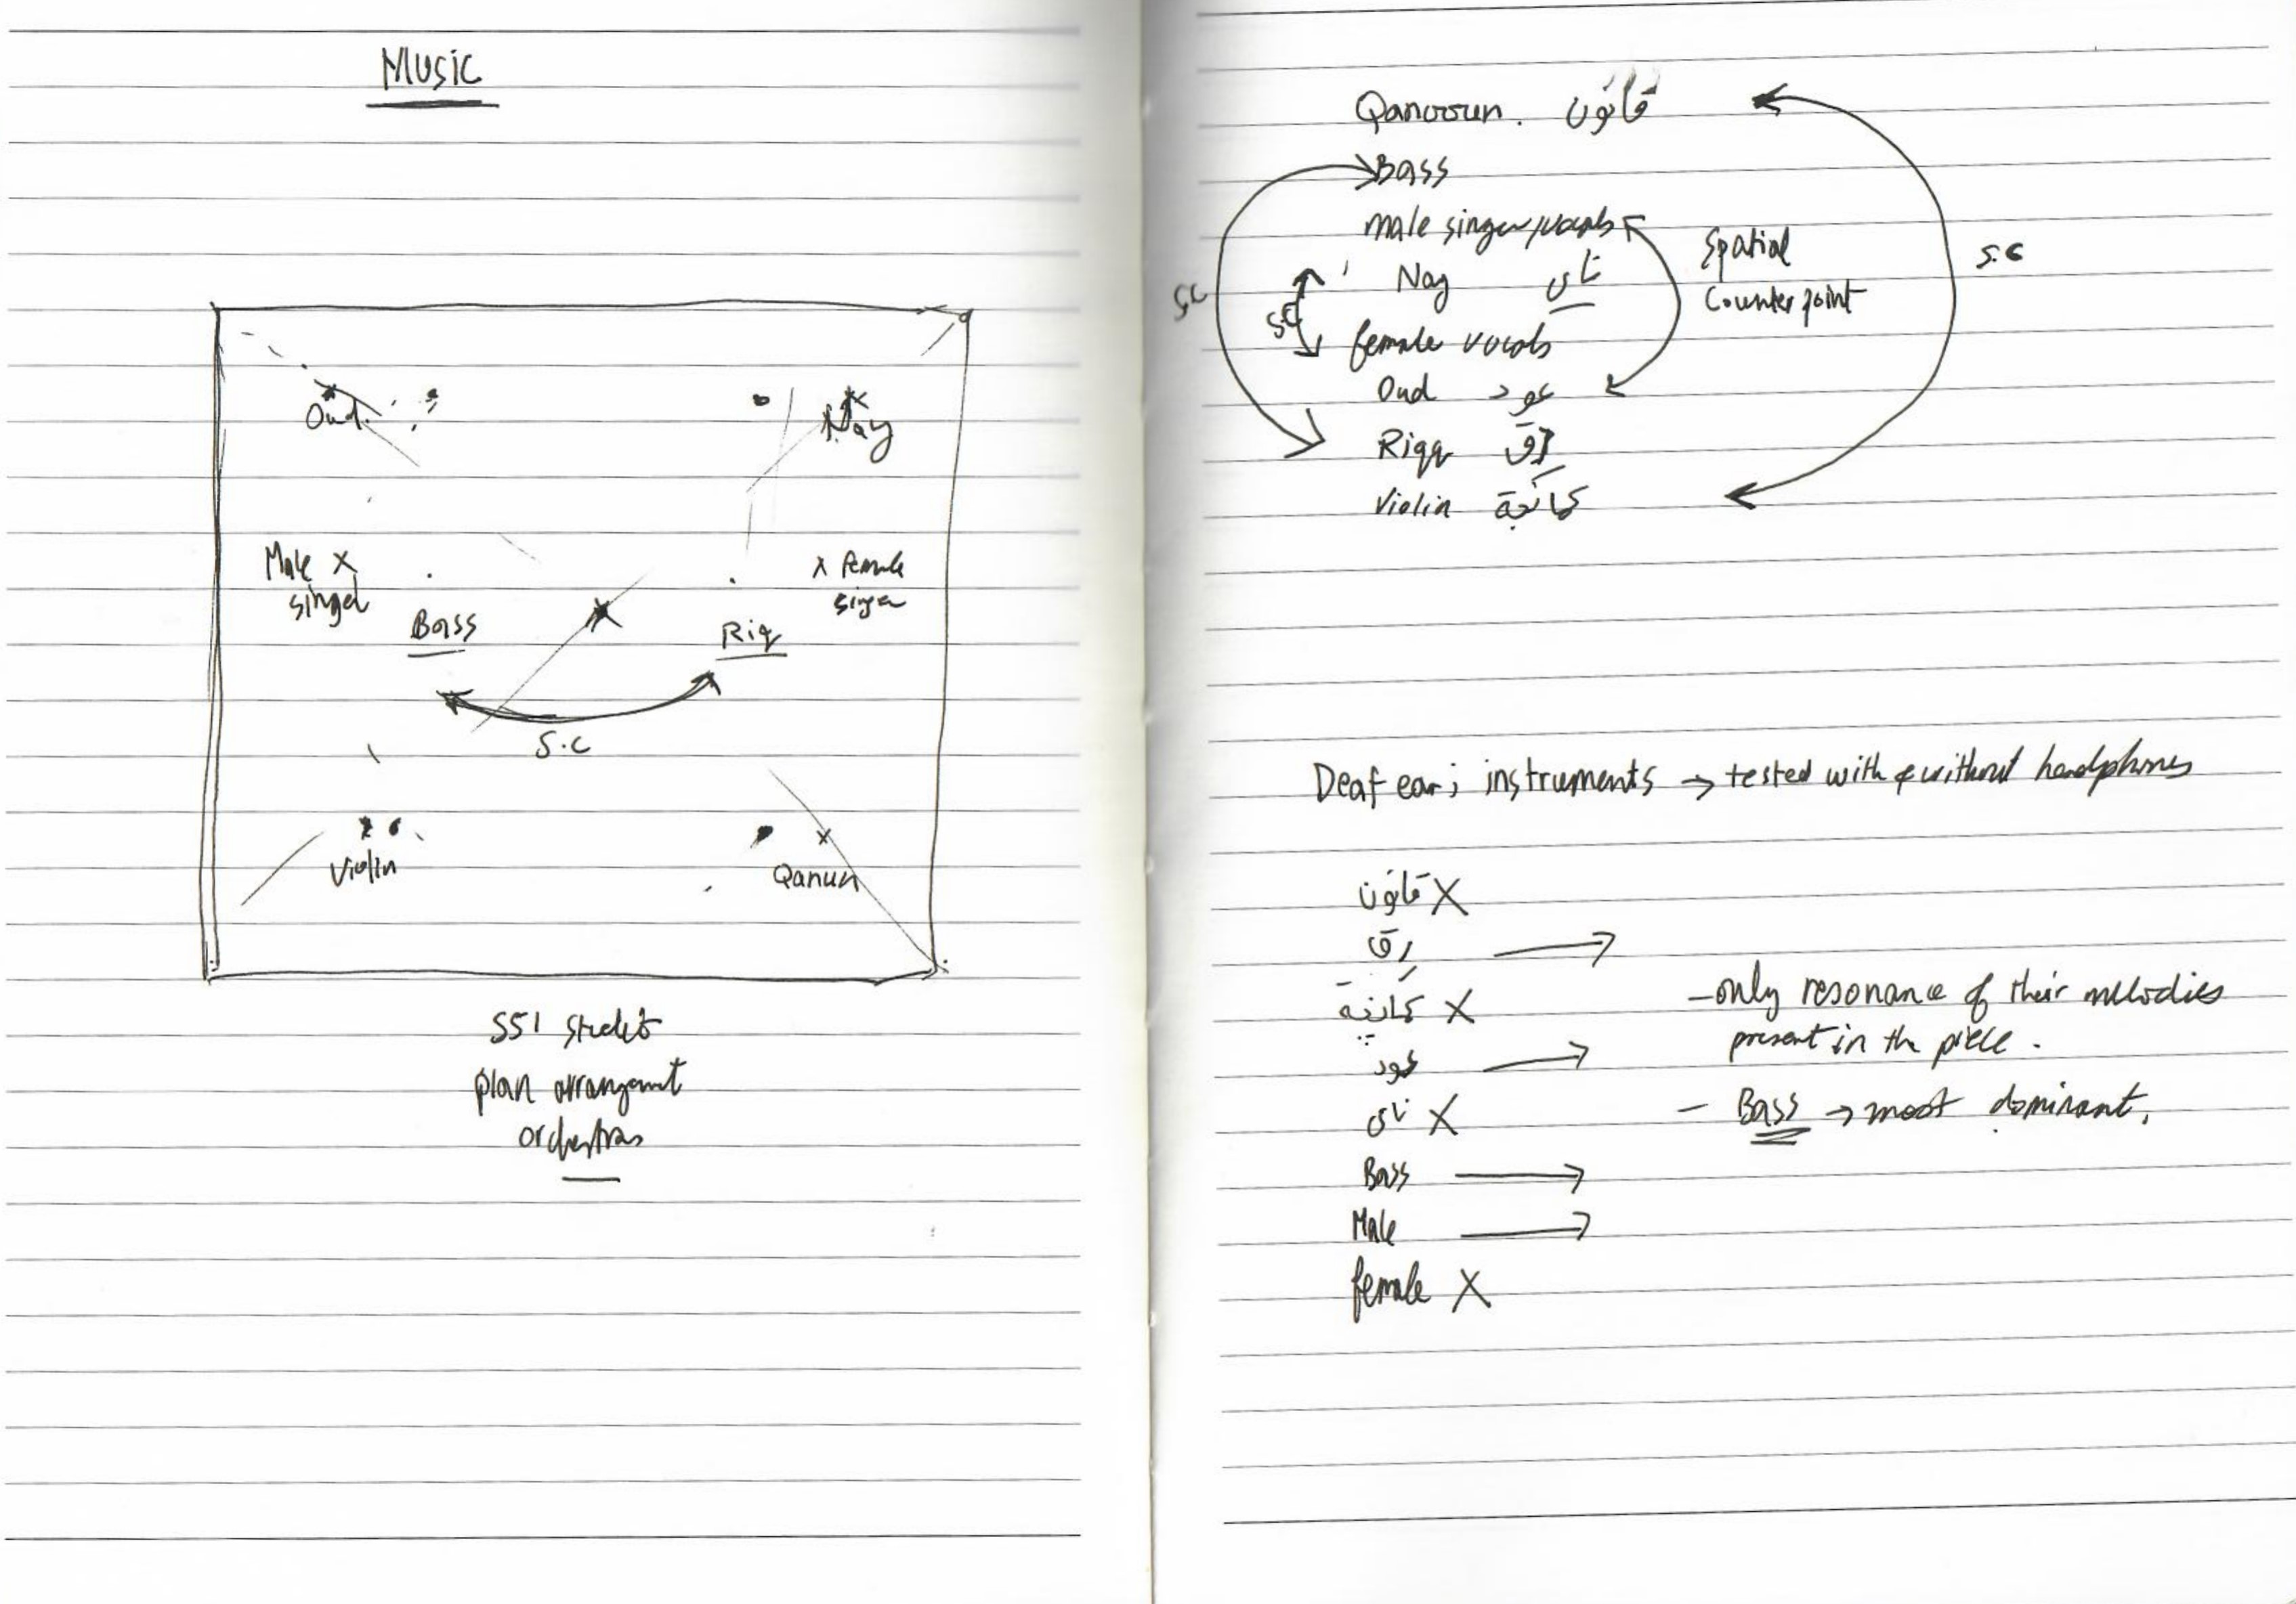 Music
Oud
Nay
Male
singer
female
singer
Bass
Riq
S.C
Violin
Qanun
SS1
plan arrangement
orchestras
Qanooun. قانون
Bass
male singer/vocals
Nay ناي
female vocals
Oud عود
Riqq رق
Violin كمانجة
Spatial
Counterpoint
S.C
S.C
S.C
Deaf ear; instruments → tested with & without headphones
قانون X
رق →
كمانجة X
عود →
ناي X
Bass →
Male →
female X
- only resonance of their melodies
present in the piece.
- Bass → most dominant.